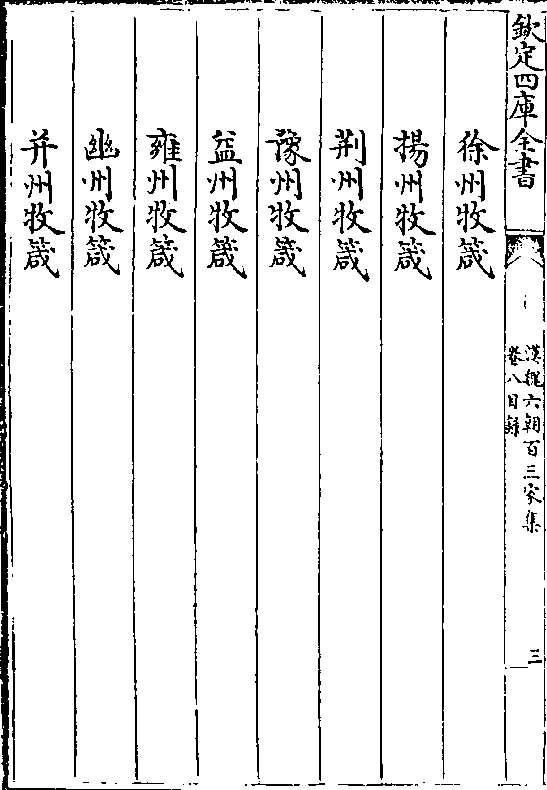 欽定四庫全書
漢魏六朝百三家集
卷八目錄
三
徐州牧箴
揚州牧箴
荆州牧箴
豫州牧箴
益州牧箴
雍州牧箴
幽州牧箴
并州牧箴